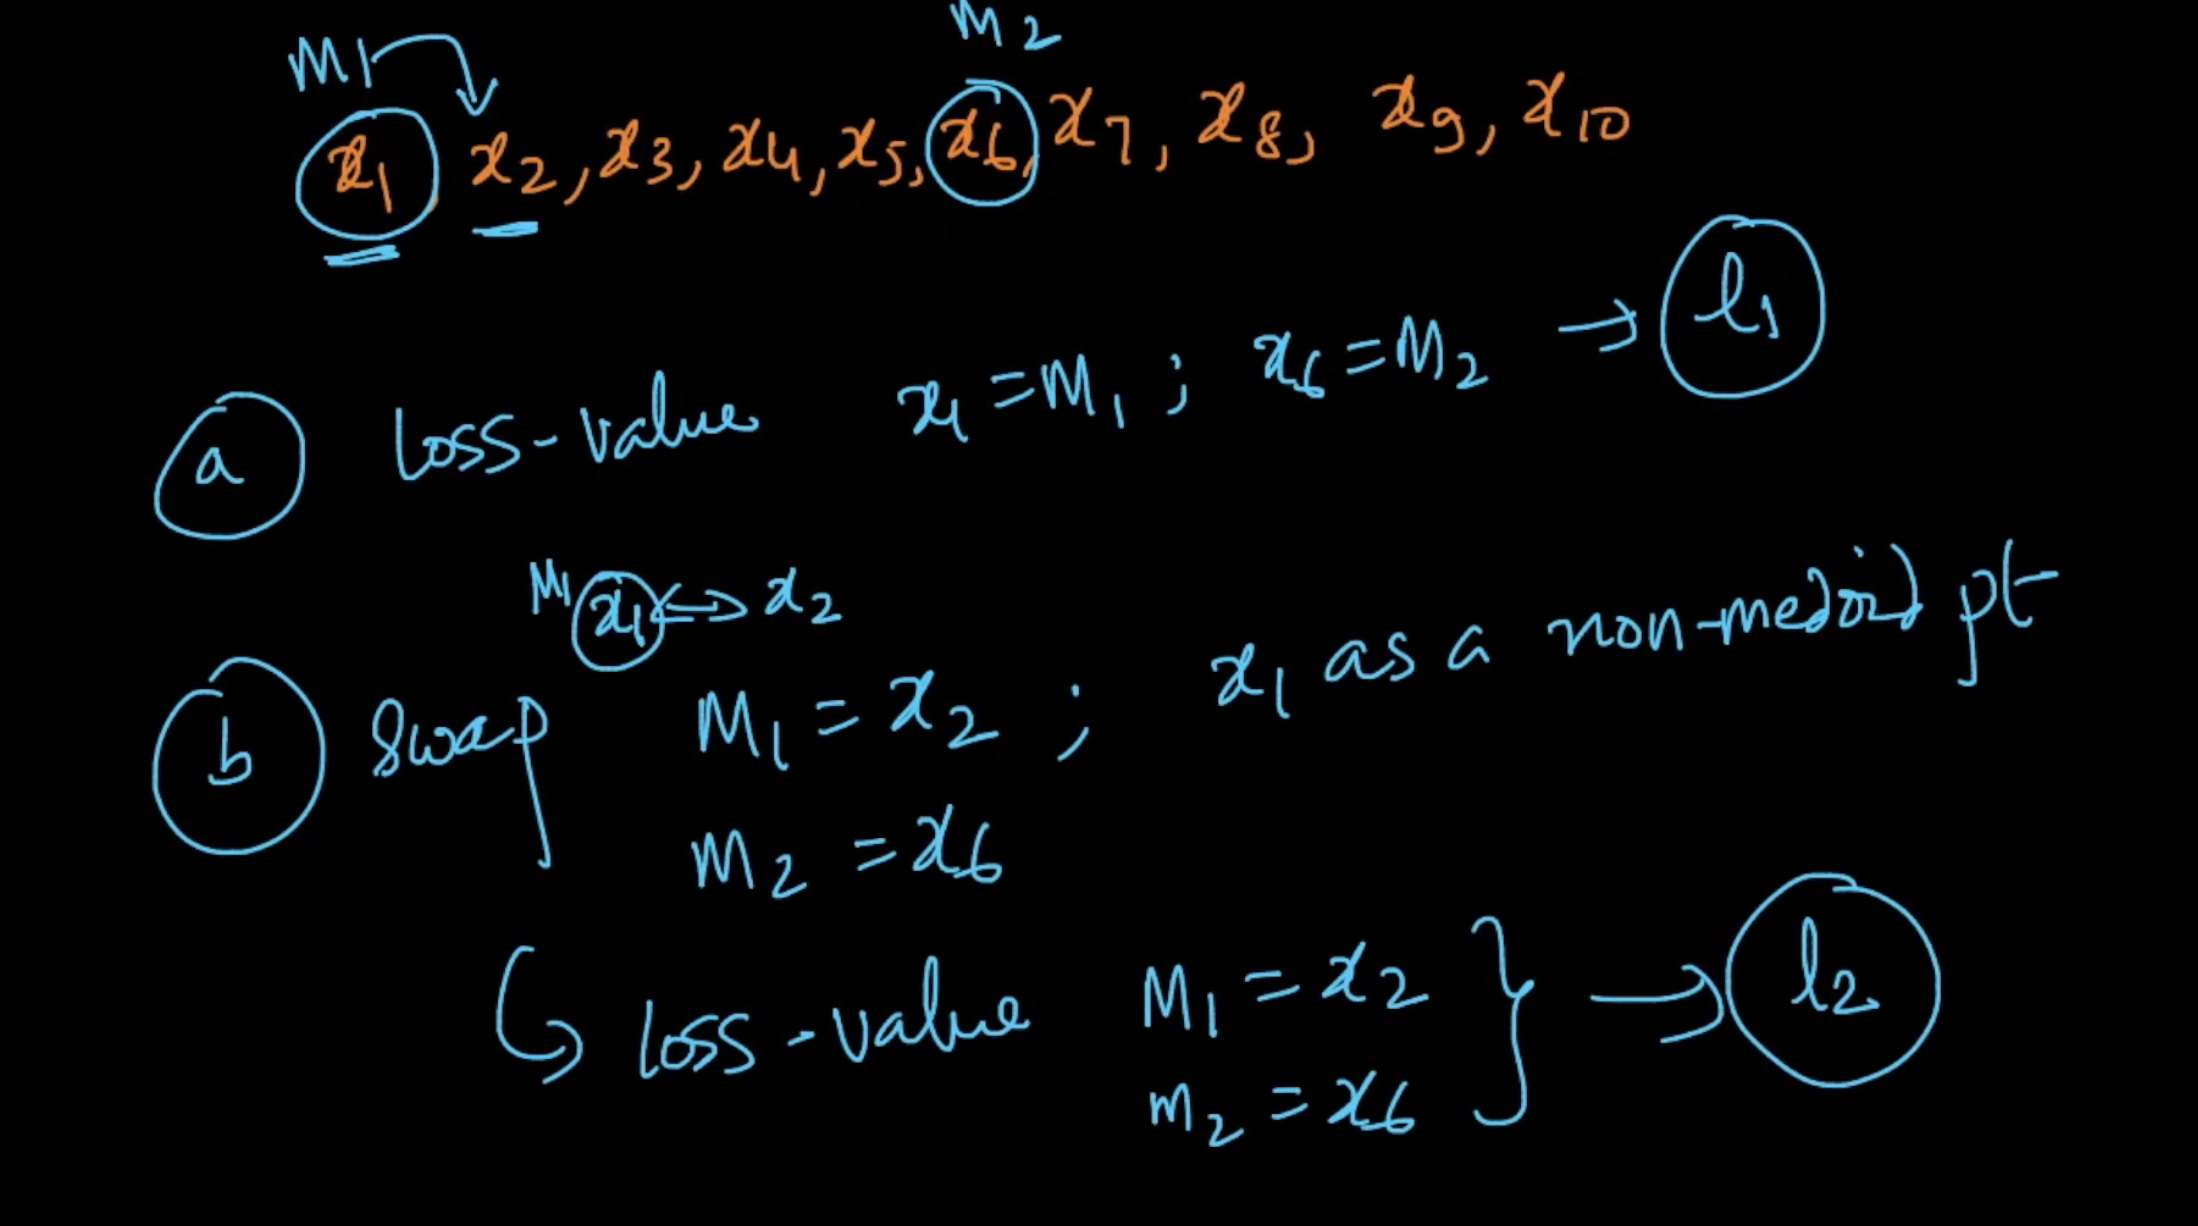 M1 M2
x1, x2, x3, x4, x5, x6, x7, x8, x9, x10
a loss-value x1 = M1 ; x6 = M2 → l1
M1 x1 ↔ x2
b swap M1 = x2 ; x1 as a non-medoid pt
M2 = x6
↳ loss-value M1 = x2 } → l2
m2 = x6